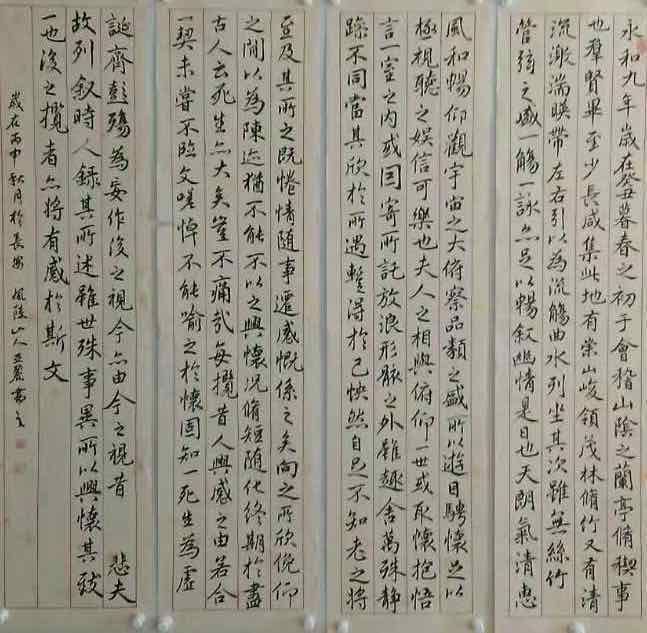 永和九年歲在癸丑暮春之初于會稽山陰之蘭亭脩稧事
也羣賢畢至少長咸集此地有崇山峻領茂林脩竹又有清
流激湍暎帶左右引以為流觴曲水列坐其次雖無絲竹
管弦之盛一觴一詠亦足以暢叙幽情是日也天朗氣清惠
風和暢仰觀宇宙之大俯察品類之盛所以遊目騁懷足以
極視聽之娛信可樂也夫人之相與俯仰一世或取懷抱悟
言一室之内或因寄所託放浪形骸之外雖趣舍萬殊靜
躁不同當其欣於所遇蹔得於己怏然自足不知老之將
至及其所之既惓情隨事遷感慨係之矣向之所欣俛仰
之閒以為陳迹猶不能不以之興懷况脩短隨化終期於盡
古人云死生亦大矣豈不痛哉每攬昔人興感之由若合
一契未嘗不臨文嗟悼不能喻之於懷固知一死生為虛
誕齊彭殤為妄作後之視今亦由今之視昔 悲夫
故列叙時人錄其所述雖世殊事異所以興懷其致
一也後之攬者亦將有感於斯文
歲在丙申秋月於長安 風陵山人書之